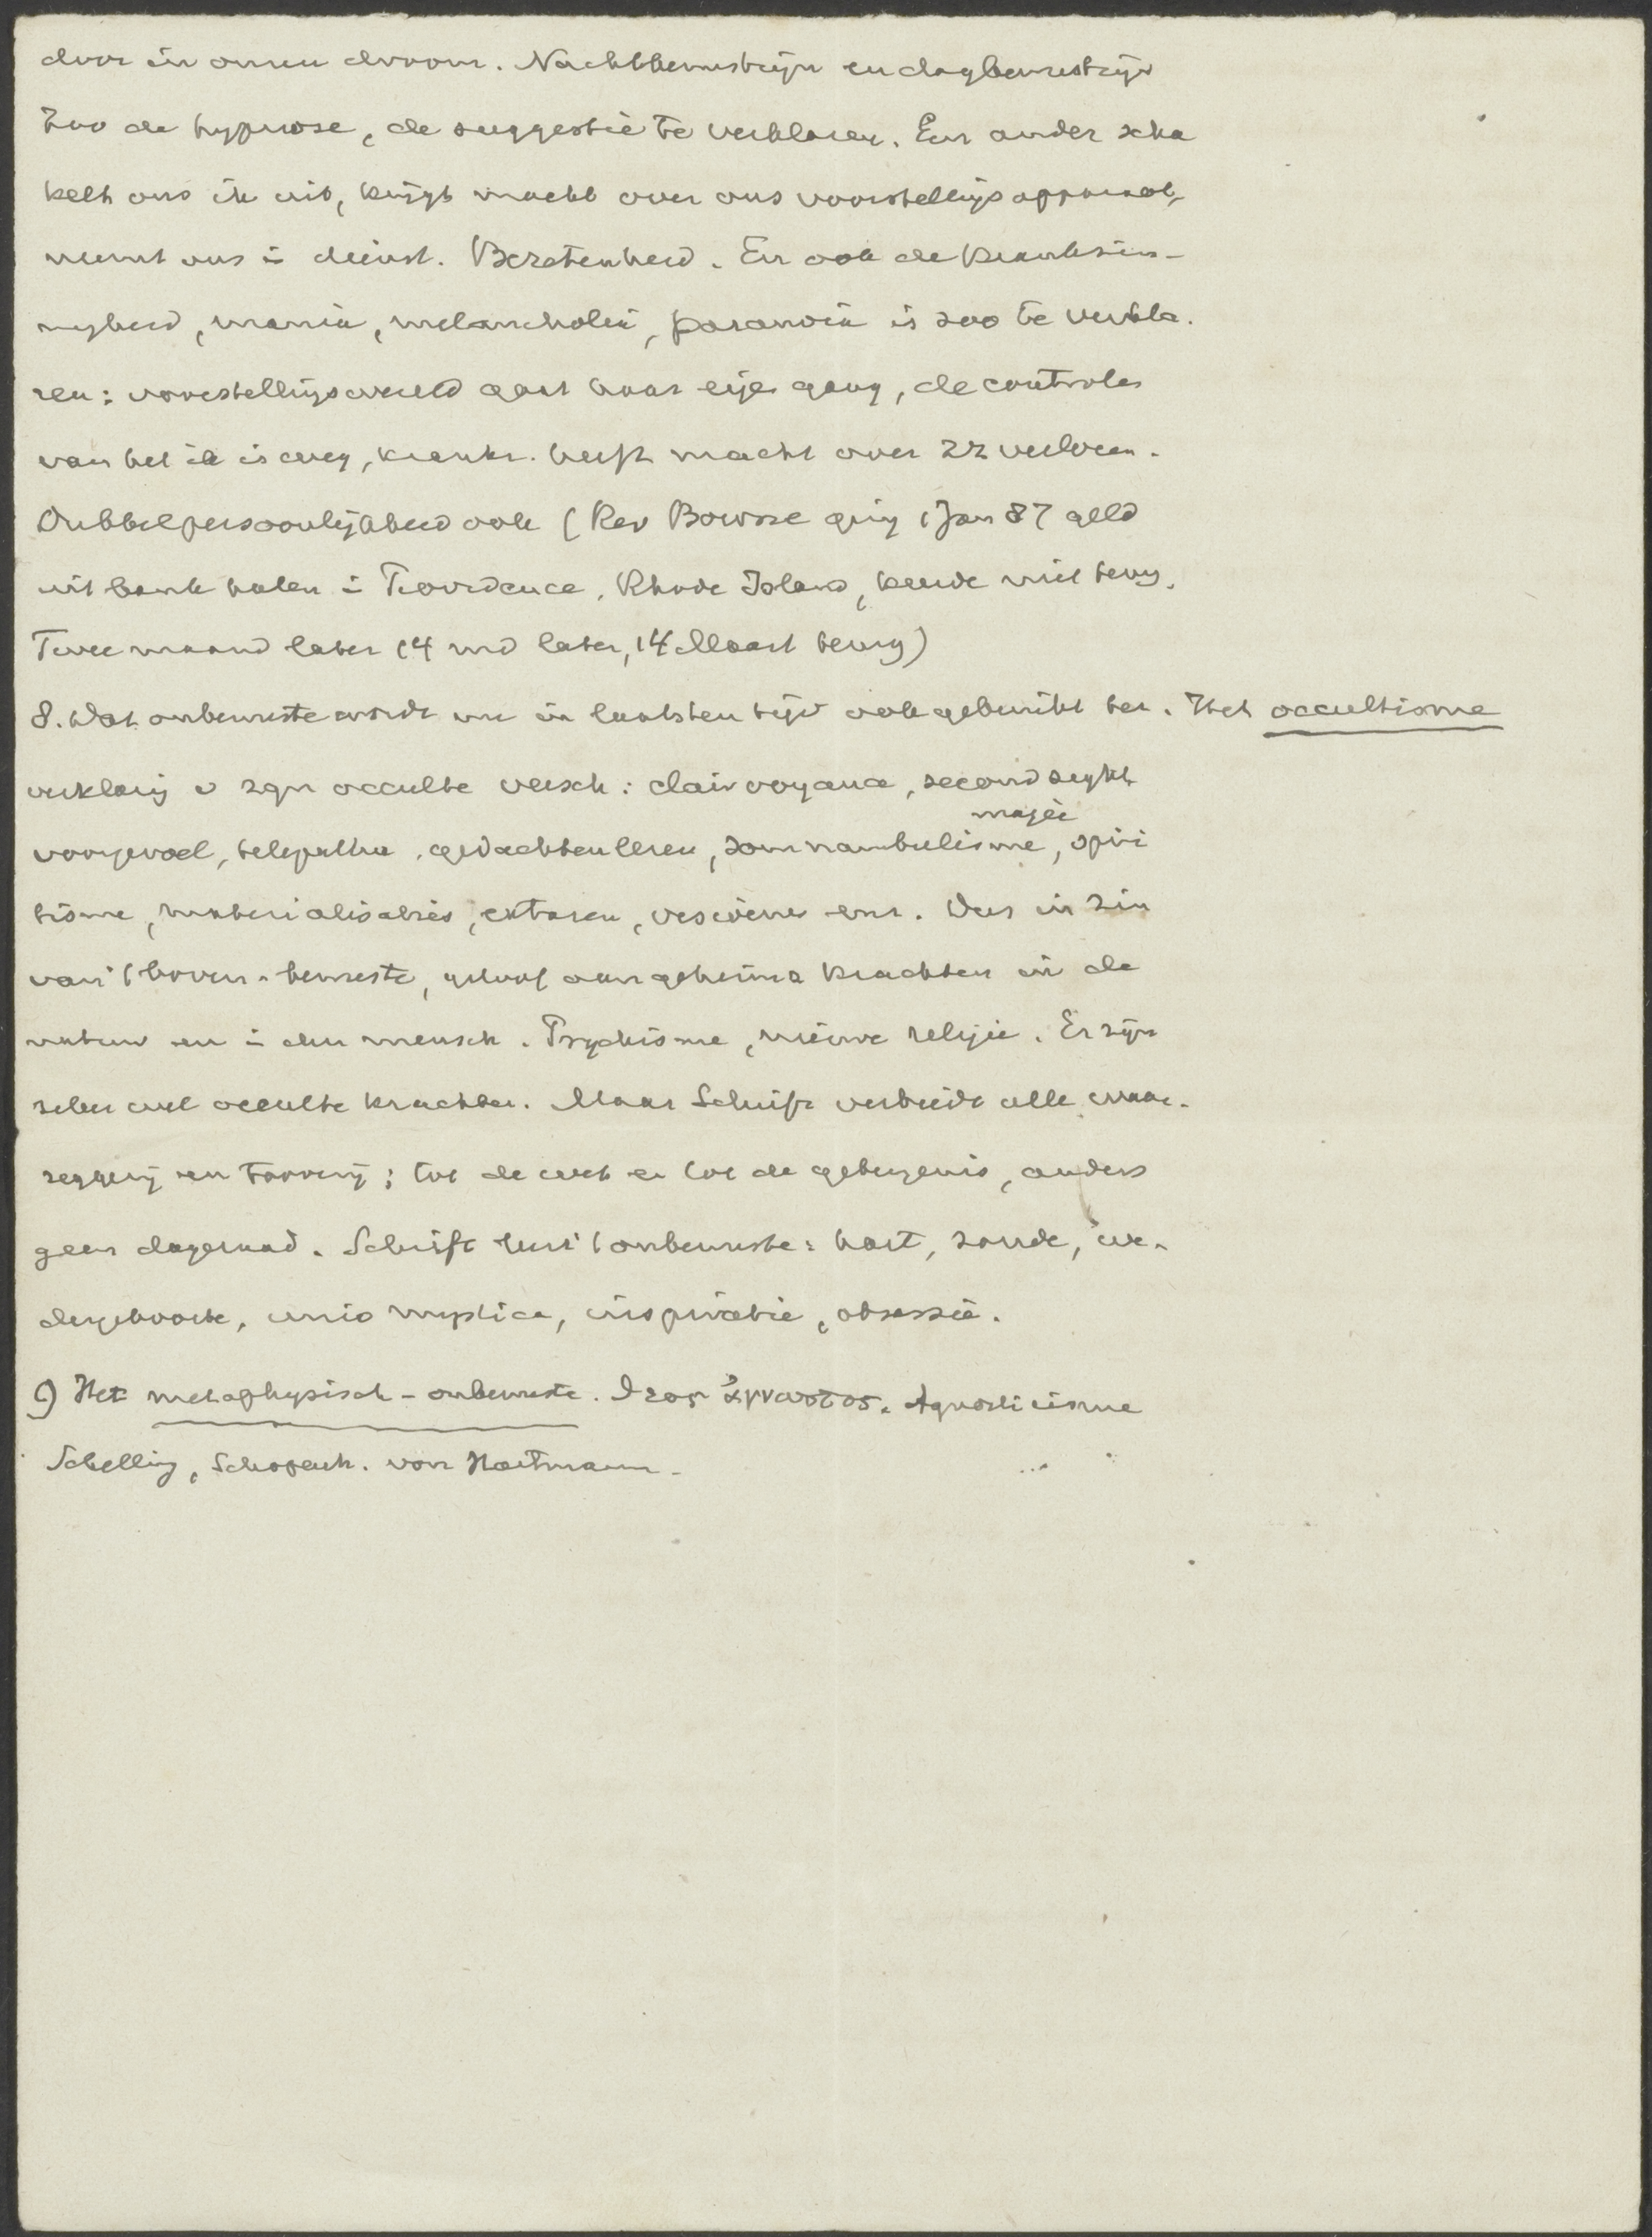 door in onzen droom. Nachtbewustzijn en dagbewustzijn
Zoo de hypnose, de suggestie te verklaren. Een ander scha
kelt ons ik uit, krijgt macht over ons voorstellingsapparaat,
neemt ons in dienst. Bezetenheid. En ook de krankzin-
nigheid, mania, melancholie, paranoia is zoo te verkla.
ren: voorstellingswereld gaat haar eigen gang, de controle
van het ik is weg, kranke. heeft macht over zz verloren.
Dubbelpersoonlijkheid ook (Rev Bourne ging 1 Jan 87 geld
uit bank halen in Providence, Rhode Island, keerde niet terug.
Twee maand later (4 md later, 14 Maart terug)
8. Dat onbewuste wordt nu in laatsten tijd ook gebruikt ter. Het occultisme
verklaring v zgn occulte versch: clairvoyance, second sight
magie
voorgevoel, telepathie, gedachtenlezen, somnambulisme, spiri
tisme, materialisaties, extasen, visioenen enz. Dus in zin
van 't boven-bewuste, geloof aan geheime krachten in de
natuur en in den mensch. Psychisme, nieuwe religie. Er zijn
zeker wel occulte krachten. Maar Schrift verbiedt alle waar-
zeggerij en tooverij; tot de wet en tot de getuigenis, anders
geen dageraad. Schrift leert 't onbewuste: hart, zonde, we-
dergeboorte, unio mystica, inspiratie, obsessie.
9) Het metaphysisch-onbewuste. Θεος ἄγνωστος. Agnosticisme
Schelling, Schopenh. von Hartmann.